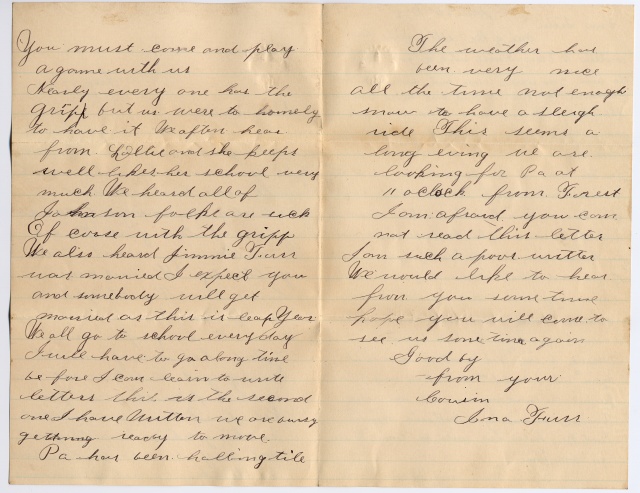 You must come and play
a game with us
Nearly every one has the
gripp but us were to homely
to have it We often hear
from Lollie and she keeps
well likes her school very
much We heard all of
Johnson folks are sick
Of coose with the gripp
We also heard Jimmie Furr
was married I expect you
and somebody will get
married as this is leap Year
We all go to school every day
I will have to go along time
be fore I can learn to write
letters this is the second
one I have written we are busy
getting ready to move.
Pa has been halling tile
The weather has
been very nice
all the time not enough
snow to have a sleigh
ride This seems a
long eving we are
looking for Pa at
11 oclock from Forest
I am afraid you can
not read this letter
I am such a poor writter
We would like to hear
from you some time
hope you will come to
see us some time again
Good by
from your
Cousin
Furr